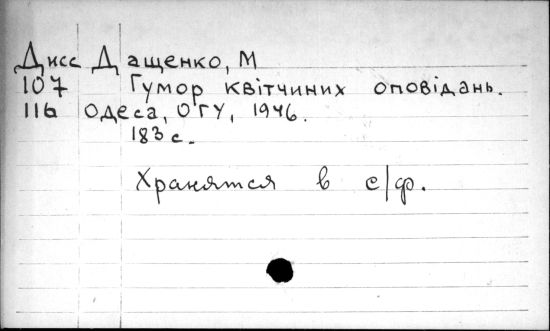 Дисс Дащенко, М
107 Гумор квітчиних оповідань.
116 Одеса, ОГУ, 1946.
183 с.
Хранятся в с/ф.